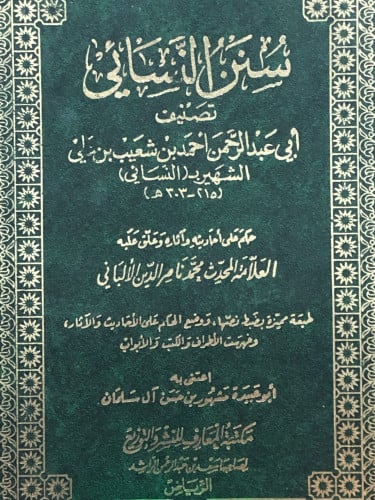 سُنَن النَّسَائي
تصنيف
أبي عبد الرحمن أحمد بن شعيب بن علي
الشهير بـ (النسائي)
(٢١٥ - ٣٠٣ هـ)
حكم على أحاديثه وآثاره وعلق عليه
العلامة المحدث محمد ناصر الدين الألباني
طبعة مميزة بضبط نصها، ووضع الحكم على الأحاديث والآثار،
وفهرست الأطراف والكتب والأبواب
اعتنى به
أبو عبيدة مشهور بن حسن آل سلمان
مكتبة المعارف للنشر والتوزيع
لصاحبها سعد بن عبد الرحمن الراشد
الرياض